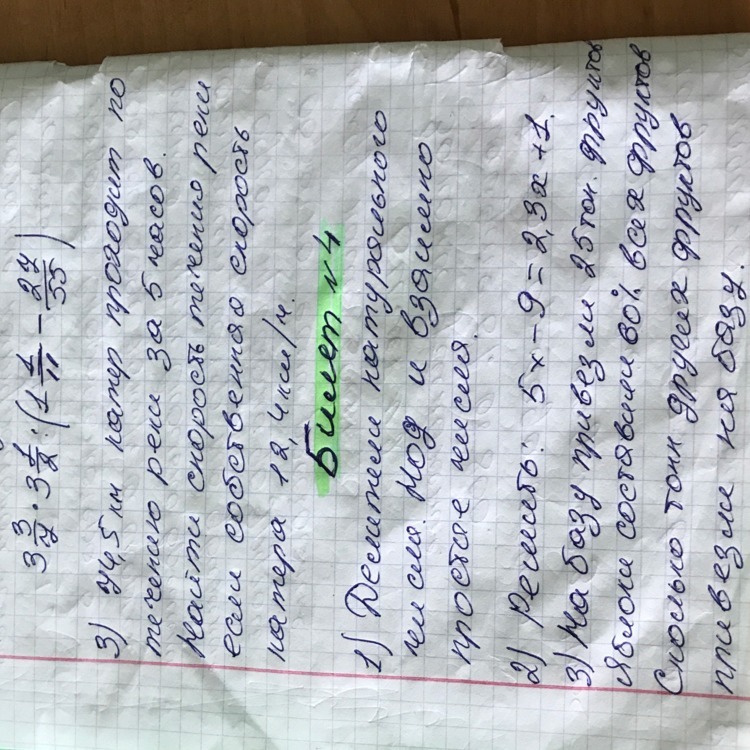 3 3/7 · 3 1/2 : (1 1/11 - 27/55)
3) 74,5 км катер проходит по
течению реки за 5 часов.
Найти скорость течения реки
если собственная скорость
катера 12,4 км/ч.
Билет №4
1) Делители натурального
числа. НОД и взаимно
простые числа.
2) Решить: 5x - 9 = 2,3x + 1.
3) На базу привезли 25 тон. фруктов
Яблоки составляли 60% всех фруктов
Сколько тонн других фруктов
привезли на базу.